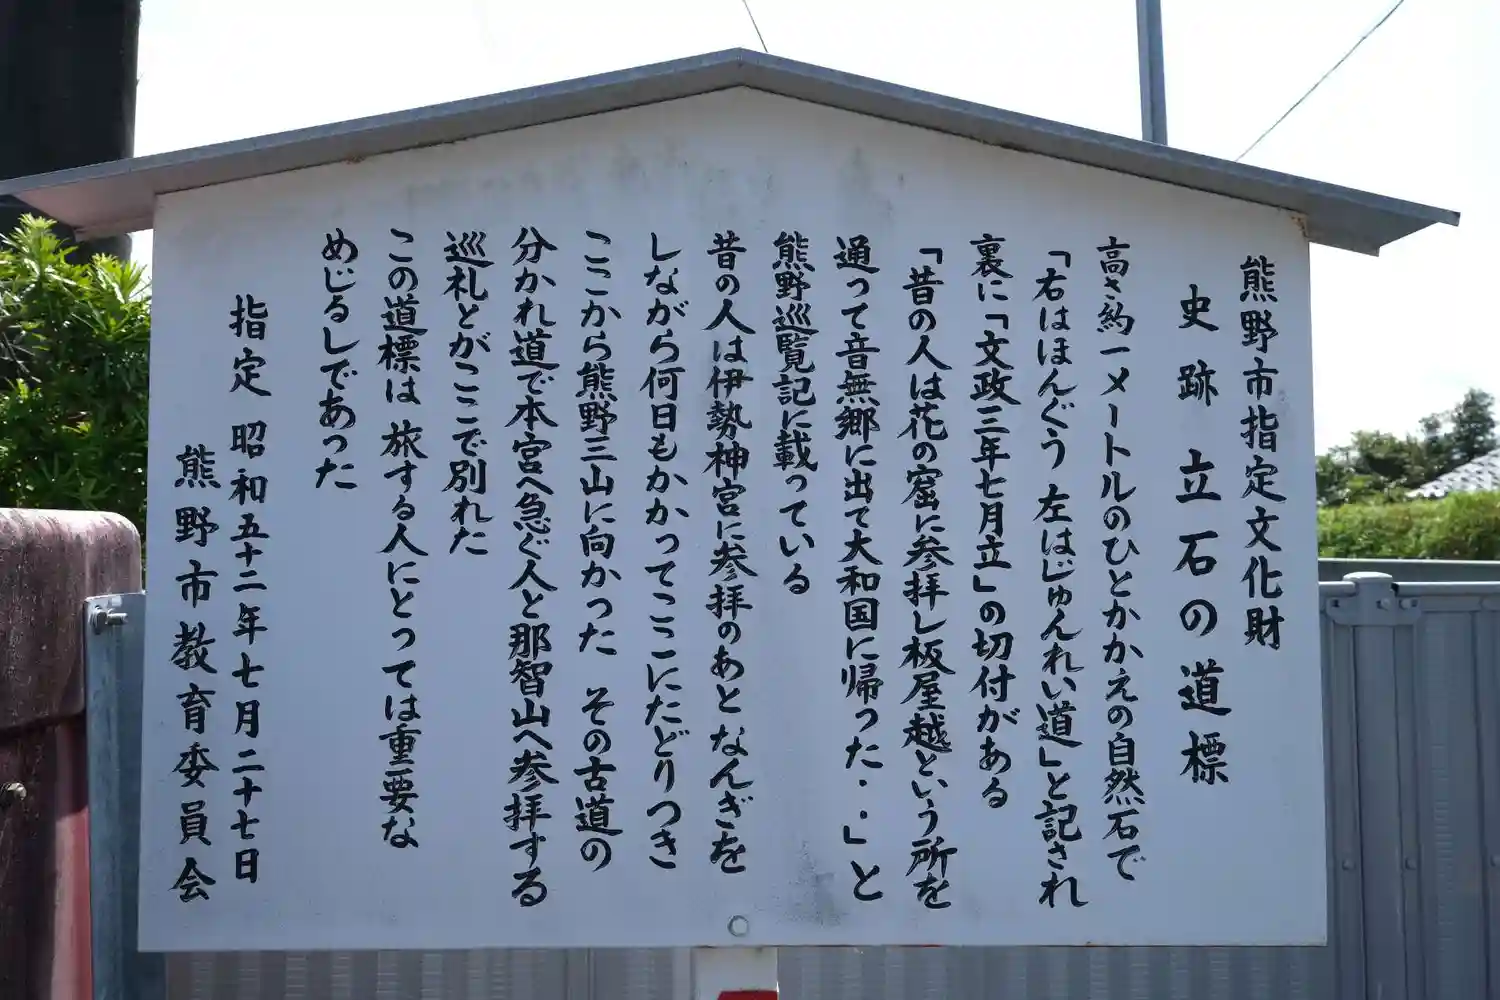 熊野市指定文化財
史跡 立石の道標
高さ約一メートルのひとかかえの自然石で
「右はほんぐう 左はじゅんれい道」と記され
裏に「文政三年七月立」の切付がある
「昔の人は花の窟に参拝し板屋越という所を
通って音無郷に出て大和国に帰った・・」と
熊野巡覧記に載っている
昔の人は伊勢神宮に参拝のあと なんぎを
しながら何日もかかってここにたどりつき
ここから熊野三山に向かった その古道の
分かれ道で本宮へ急ぐ人と那智山へ参拝する
巡礼とがここで別れた
この道標は 旅する人にとっては重要な
めじるしであった
指定 昭和五十二年七月二十七日
熊野市教育委員会